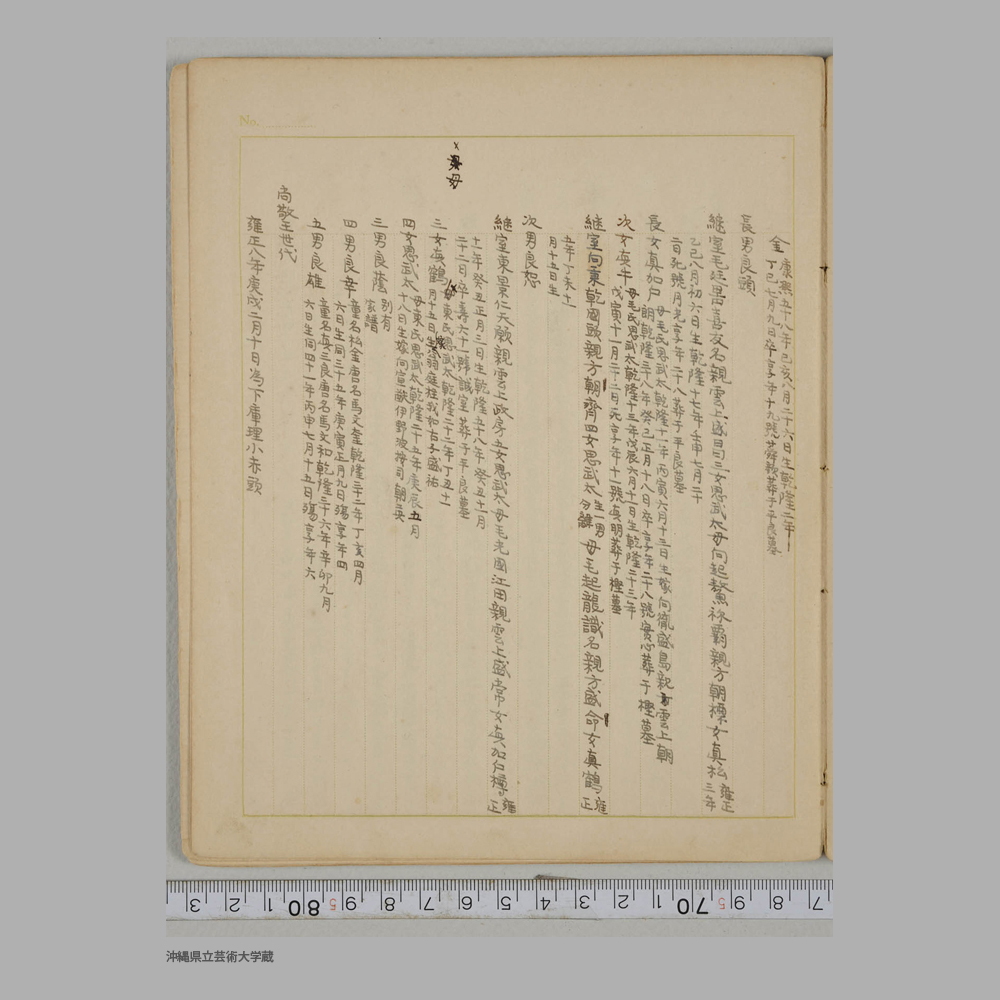 康熙五十八年己亥八月二十六日生乾隆二年丁
金
丁巳七月九日卒享年十九號蕣親葬于平良墓
長男良顕
継室毛延喜喜友名親雲上盛昌三女思武太母向起驁祢覇親方朝標女真松
雍正三年
己酉八月初六日生乾隆十七年壬申七月二十
二日死號月光享年二十八葬于平良墓
長女真加戸
母毛氏思武太乾隆十一年丙寅六月十三日生嫁向寵盛島親雲上朝
朗乾隆三十八年癸巳正月十八日卒享年二十八號實心葬于樫墓
次女真牛
母毛氏思武太乾隆十三年戊辰六月十日生乾隆二十三年
戊寅十一月二十二日死享年十一號真明葬于樫墓
継室向秉乾國頭親方朝齊四女思武太生一男
母毛起龍識名親方盛命女真鶴
雍正
五年丁未十
月十五日生
次男良恕
継室東景仁天願親雲上政房五女思武太母毛光國江田親雲上盛常女真加戸樽
雍正
十一年癸丑正月三日生乾隆五十八年癸丑十一月
二十二日卒壽六十一號誠室葬于平良墓
三女真鶴
母東氏思武太乾隆二十二年丁丑十
月十五日生嫁翁庭柱我如古子盛祐
四女思武太
母東氏思武太乾隆二十五年庚辰五月
十八日生嫁向宣猷伊野波按司朝英
三男良蔭
別有
家譜
四男良幸
童名松金唐名馬文奎乾隆三十二年丁亥四月
六日生同三十五年庚寅正月九日殤享年四
五男良雄
童名真三良唐名馬文和乾隆三十六年辛卯九月
六日生同四十一年丙申七月十五日殤享年六
尚敬王世代
雍正八年庚戌二月十日為下庫理小赤頭
No.
3 2 1 80 9 8 7 6 5 4 3 2 1 70 9 8 7
沖縄県立芸術大学蔵